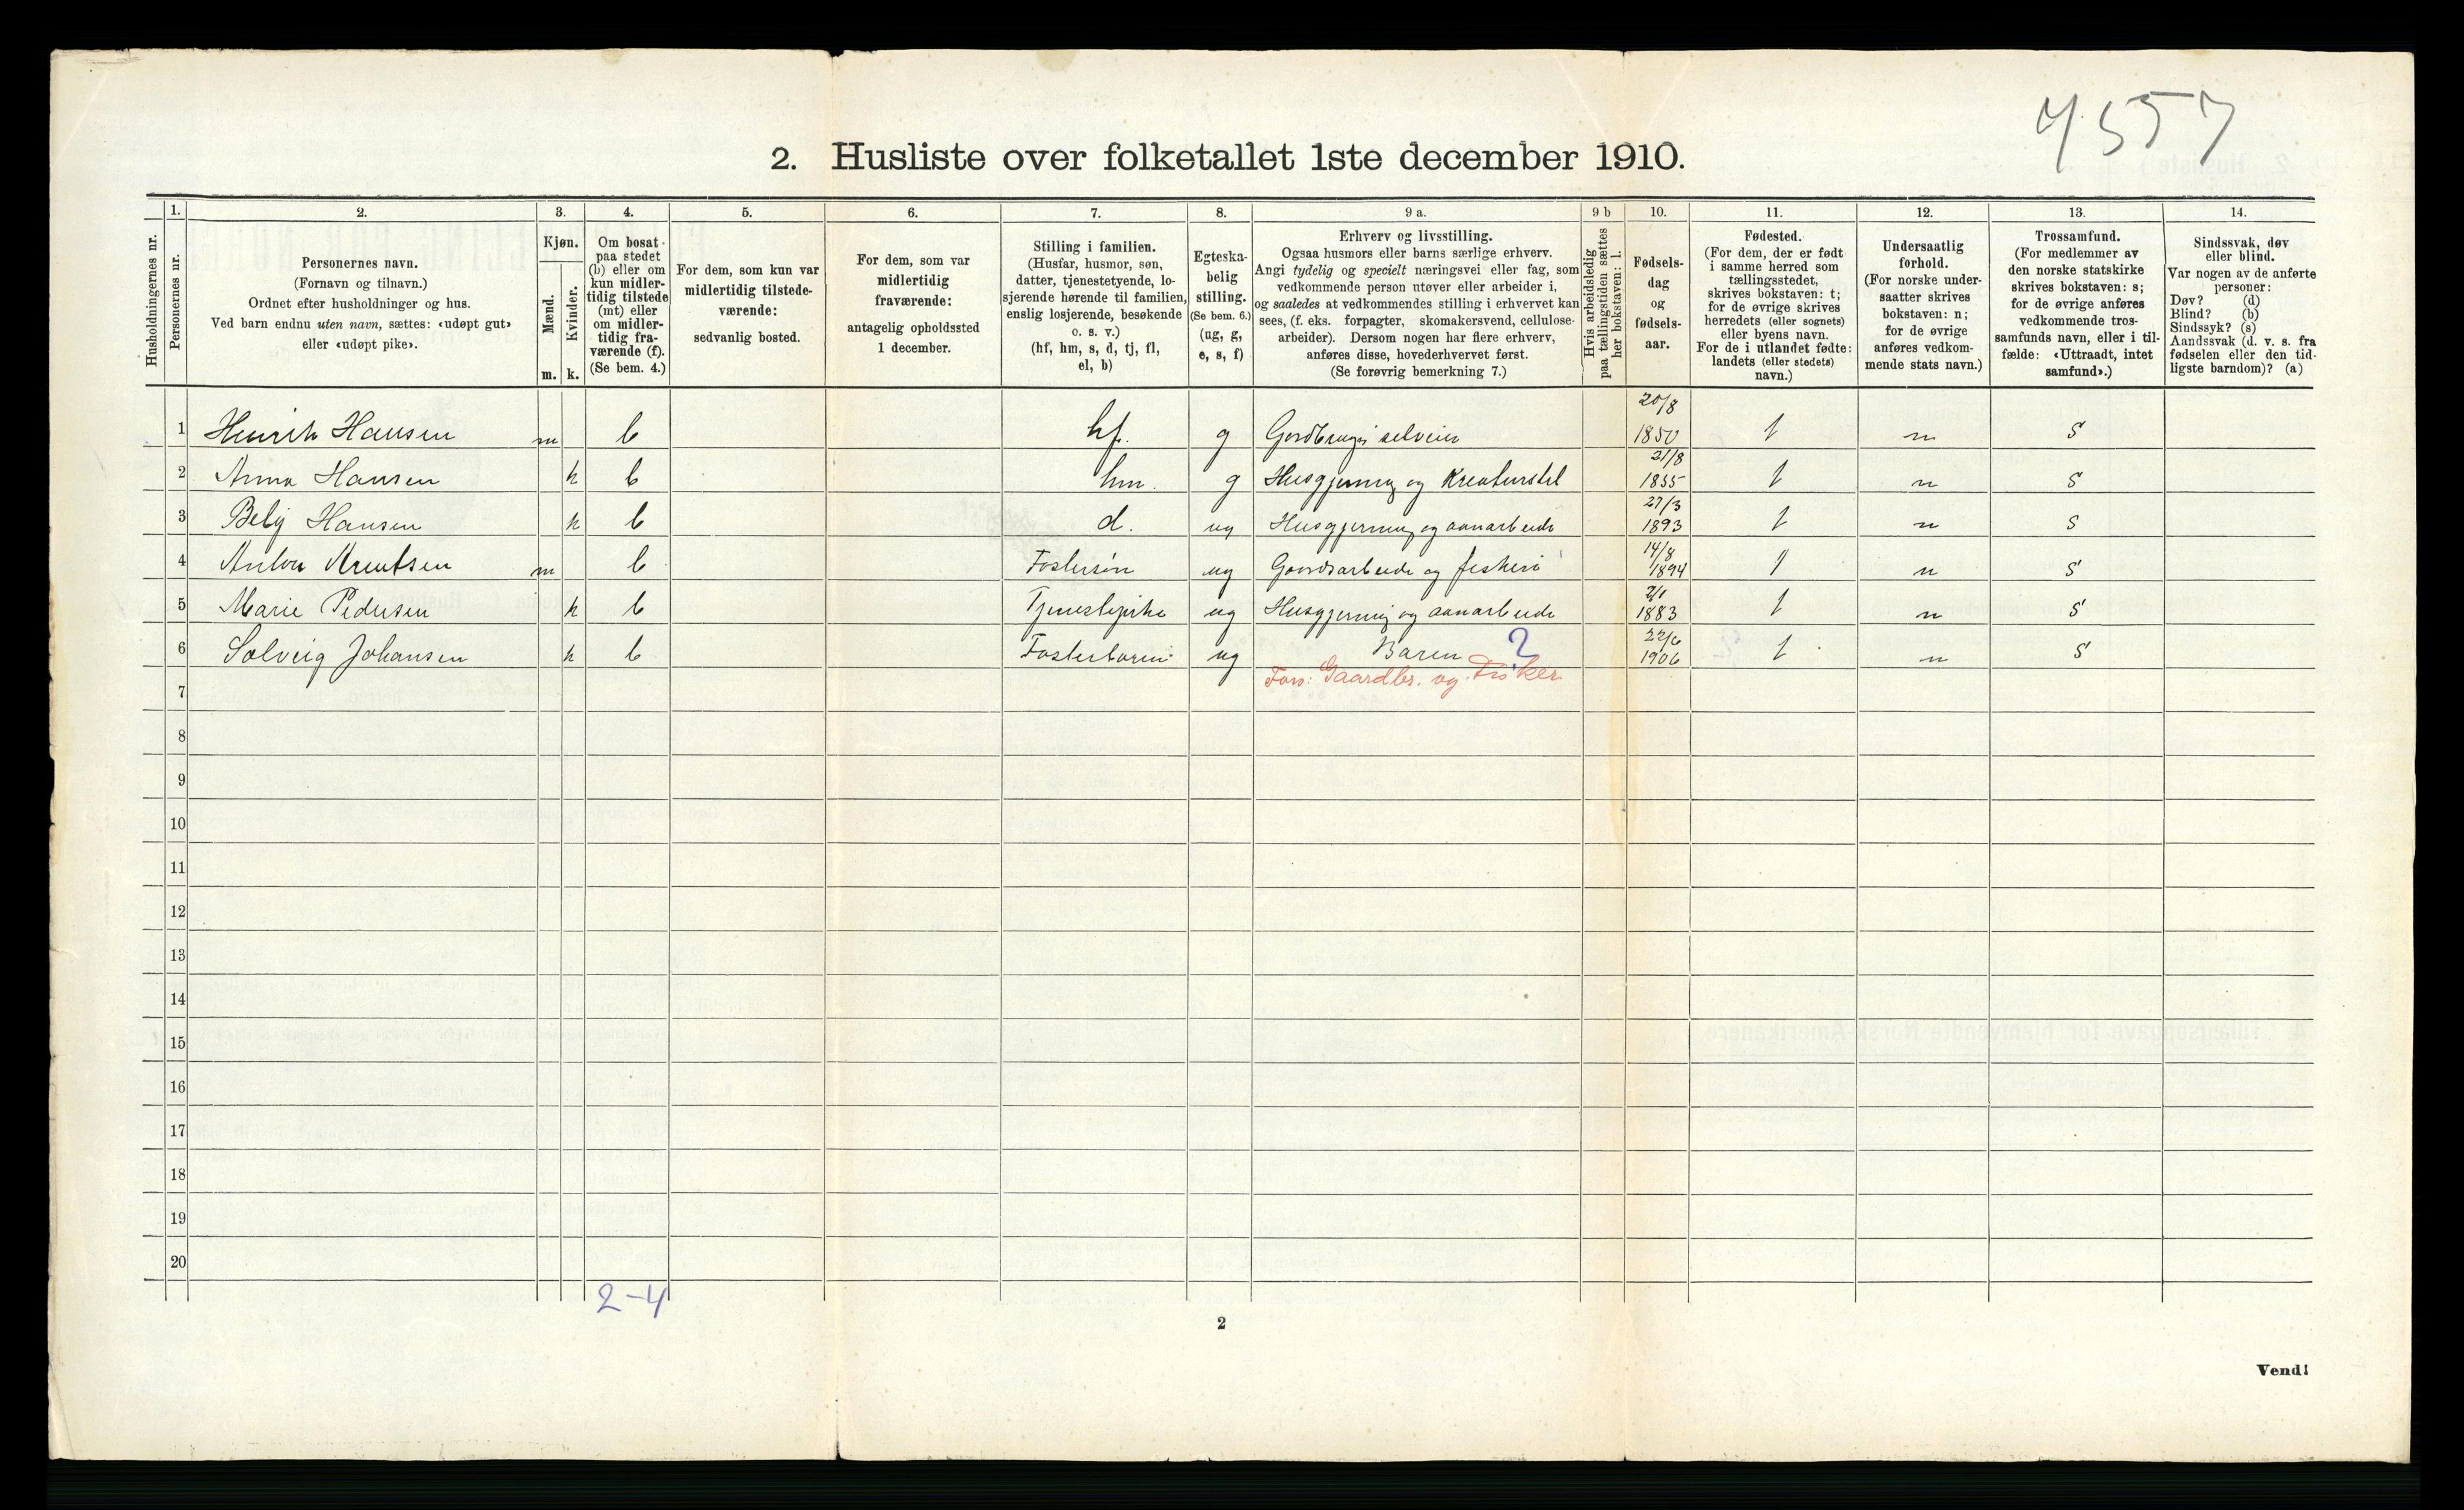 4557
2. Husliste over folketallet 1ste december 1910.
Husholdningernes nr.
1.
Personernes nr.
2.
Personernes navn.
(Fornavn og tilnavn.)
Ordnet efter husholdninger og hus.
Ved barn endnu uten navn, sættes: «udøpt gut»
eller «udøpt pike».
3.
Kjøn.
Mænd.
Kvinder.
m. k.
4.
Om bosat
paa stedet
(b) eller om
kun midler-
tidig tilstede
(mt) eller
om midler-
tidig fra-
værende (f).
(Se bem. 4.)
5.
For dem, som kun var
midlertidig tilstede-
værende:
sedvanlig bosted.
6.
For dem, som var
midlertidig
fraværende:
antagelig opholdssted
1 december.
7.
Stilling i familien.
(Husfar, husmor, søn,
datter, tjenestetyende, lo-
sjerende hørende til familien,
enslig losjerende, besøkende
o. s. v.)
(hf, hm, s, d, tj, fl,
el, b)
8.
Egteska-
belig
stilling.
(Se bem. 6.)
(ug, g,
e, s, f)
9 a.
Erhverv og livsstilling.
Ogsaa husmors eller barns særlige erhverv.
Angi tydelig og specielt næringsvei eller fag, som
vedkommende person utøver eller arbeider i,
og saaledes at vedkommendes stilling i erhvervet kan
sees, (f. eks. forpagter, skomakersvend, cellulose-
arbeider). Dersom nogen har flere erhverv,
anføres disse, hovederhvervet først.
(Se forøvrig bemerkning 7.)
9 b
Hvis arbeidsledig
paa tællingstiden sættes
her bokstaven: l.
10.
Fødsels-
dag
og
fødsels-
aar.
11.
Fødested.
(For dem, der er født
i samme herred som
tællingsstedet,
skrives bokstaven: t;
for de øvrige skrives
herredets (eller sognets)
eller byens navn.
For de i utlandet fødte:
landets (eller stedets)
navn.)
12.
Undersaatlig
forhold.
(For norske under-
saatter skrives
bokstaven: n;
for de øvrige
anføres vedkom-
mende stats navn.)
13.
Trossamfund.
(For medlemmer av
den norske statskirke
skrives bokstaven: s;
for de øvrige anføres
vedkommende tros-
samfunds navn, eller i til-
fælde: «Uttraadt, intet
samfund».)
14.
Sindssvak, døv
eller blind.
Var nogen av de anførte
personer:
Døv? (d)
Blind? (b)
Sindssyk? (s)
Aandssvak (d. v. s. fra
fødselen eller den tid-
ligste barndom)? (a)
1 Henrik Hansen m b hf. g Gordbruger selveier 20/8 1850 t n S
2 Anna Hansen k b hm. g Husgjerning og Kreaturstel 21/8 1855 t n S
3 Hansen k b d. ug Husgjerning og aanarbeide 27/3 1893 t n S
4 Anton Knutsen m b Fostersøn ug Goordsarbeide og fiskeri 14/8 1894 t n S
5 Marie Pedersen k b Tjenestepike ug Husgjerning og aanarbeide 1883 t n S
6 Solveig Johansen k b Fosterbaren ug Baren ? 22/6 1906 t n S
7 Fors: Gaardbr. og Fisker
8
9
10
11
12
13
14
15
16
17
18
19
20
2-4
2
Vend!